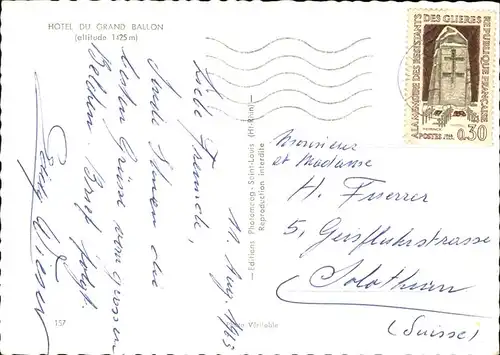 HOTEL DU GRAND BALLON
(altitude 1425 m)
11 Aug. 1963
Liebe Freunde,
sende Ihnen die
besten Grüsse vom grossen
Belchen. Brief folgt.
157
Editions Photomrog-Saint-Louis (Ht-Rhin)
Reproduction interdite
Véritable
A LA MEMOIRE DES RESISTANTS DES GLIERES
REPUBLIQUE FRANÇAISE
POSTES
0,30
Monsieur
et Madame
H.
5, Geisfluhstrasse
Solothurn
(Suisse)